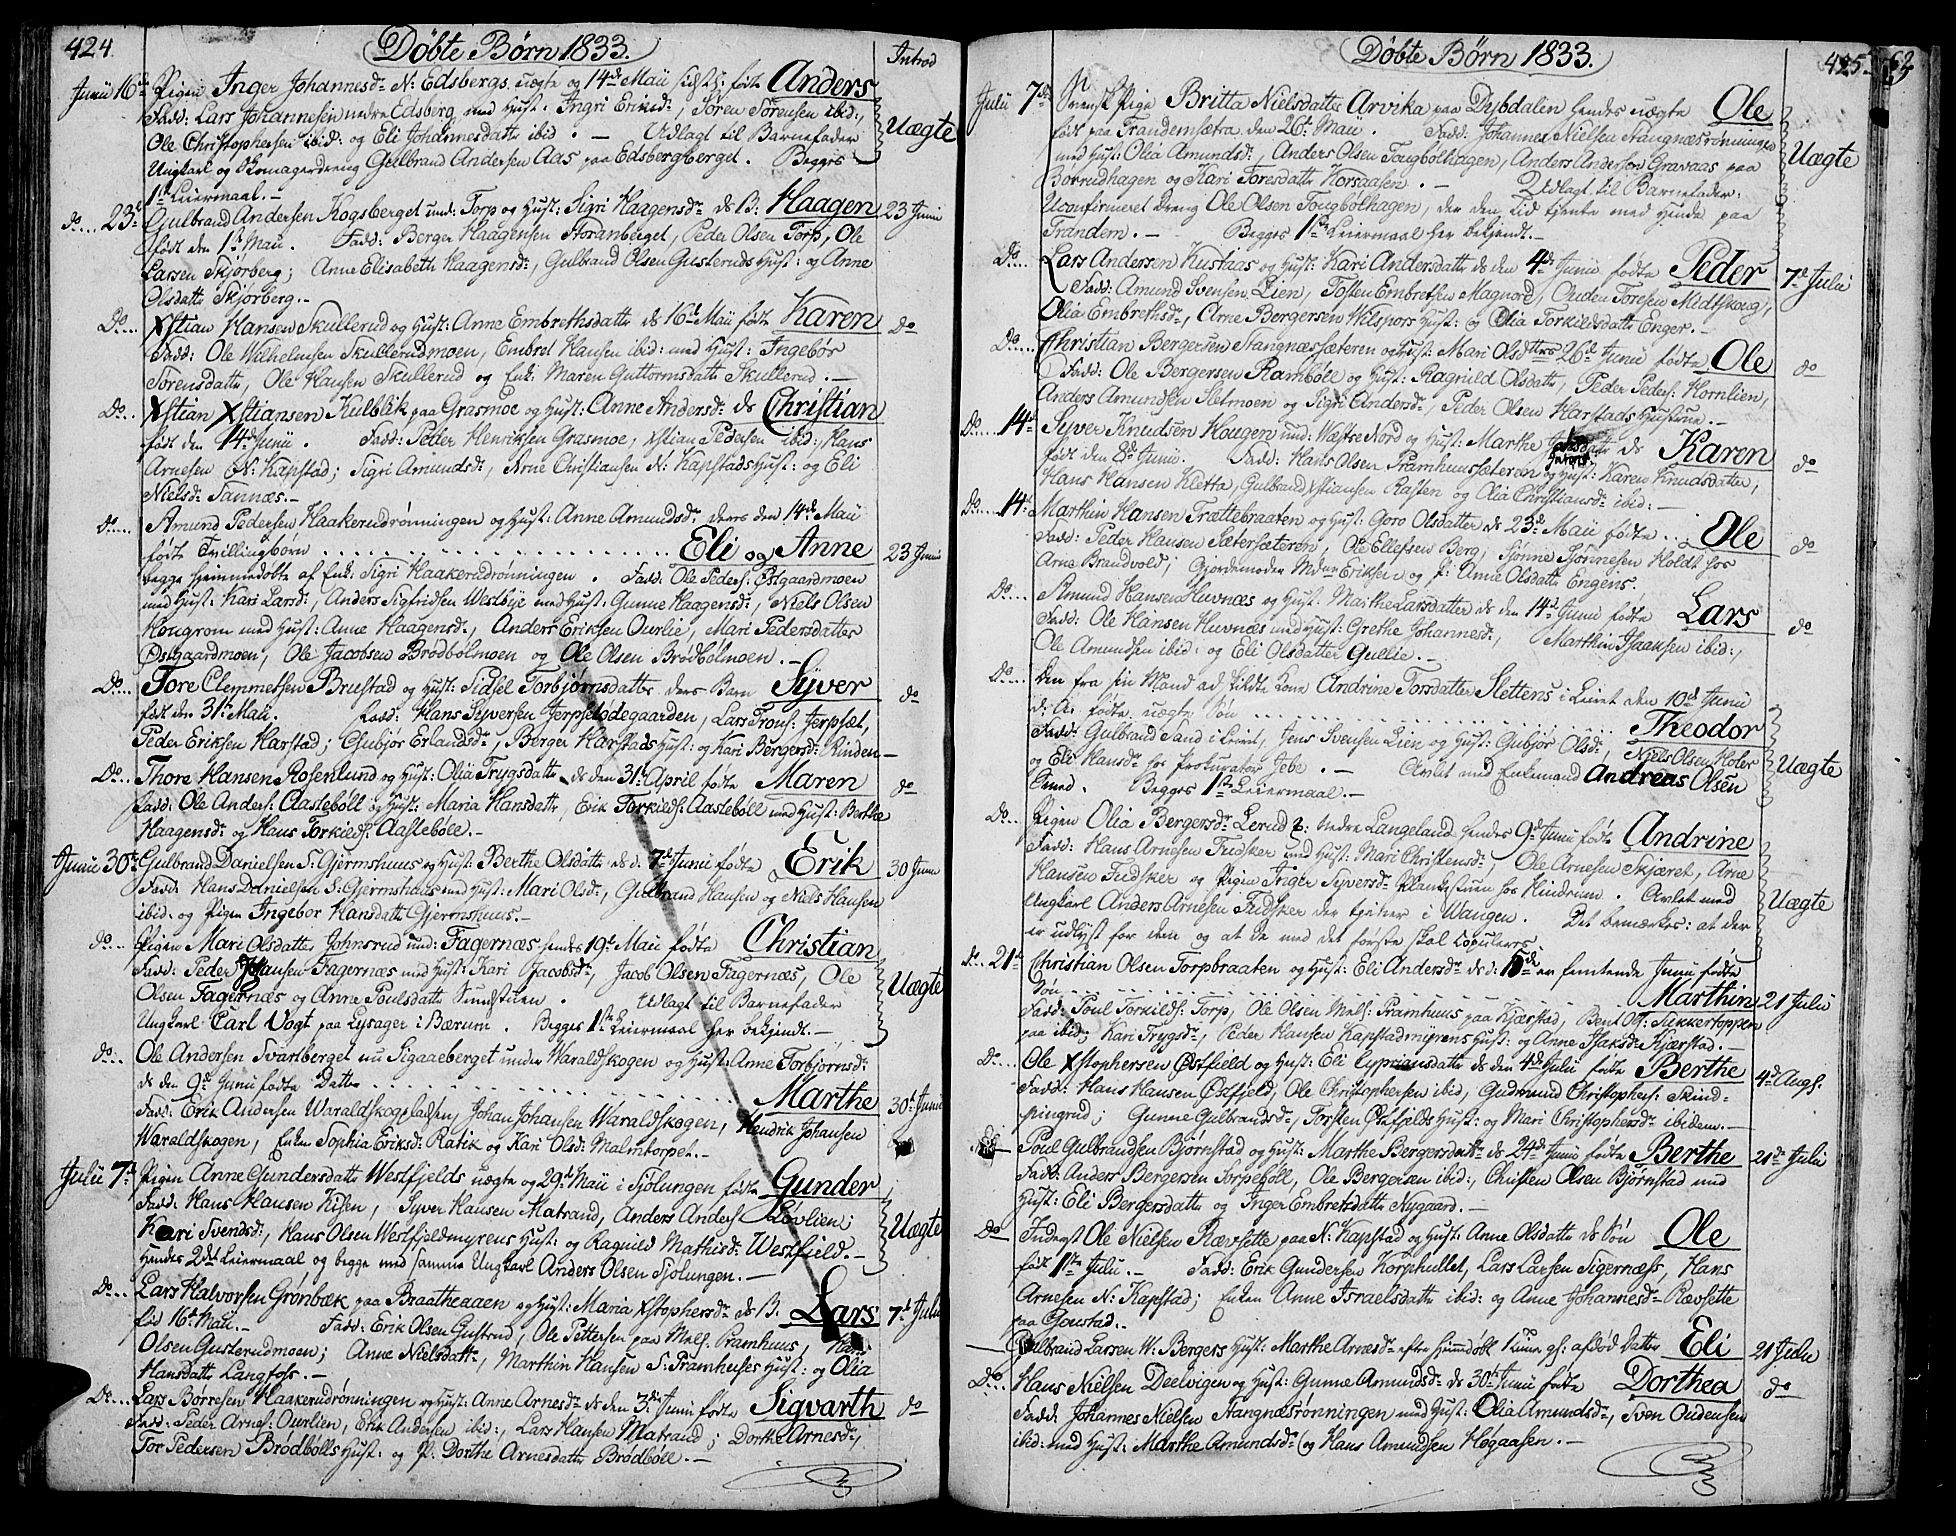 424.
Døbte Børn 1833.
Introd
Junii 16de Pigen Inger Johannesdr N: Edsbergs uægte og 14de Maii sidstl: født Anders
Fadd: Lars Johannesen nedre Edsberg med Hust: Ingri Eriksdr, Sören Sörensen ibid:,
Ole Christophersen ibid: og Eli Johannesdatter ibid. — Udlagt til Barnefader Uægte
Ungkarl og Skomagerdreng Gulbrand Andersen Aas paa Edsbergberget. Begges
1ste Leiermaal.—
do... 23de Gulbrand Andersen Kogsberget und: Torp og Hust: Sigri Haagensdr ds B. Haagen 23 Junii
født den 1ste Maii. Fadd: Berger Haagensen Storanberget, Peder Olsen Torp, Ole
Larsen Skjørberg; Anne Elisabeth Haagensdr, Gulbrand Olsen Gusteruds Hust: og Anne
Olsdatter Skjørberg.—
Do... Xstian Hansen Skullerud og Hust: Anne Embrethsdatter ds 16de Maii født Karen do
Fadd: Ole Wilhelmsen Skullerudmoen, Embret Hansen ibid: med Hust: Ingebør
Sørensdatter, Ole Hansen Skullerud og Enk: Maren Guttormsdatter Skullerud.—
Do.. Xstian Xstiansen Kulblik paa Grasmoe og Hust: Anne Andersdr ds Christian
født den 14de Junii. Fadd: Peder Henriksen Grasmoe, Xstian Pedersen ibid:, Hans
Arnesen N: Kapstad; Sigri Amundsdr, Arne Christiansen N: Kapstads Hust: og Eli
Nielsdr Sannæs.—
do... Amund Pedersen Haakerudrønningen og Hust: Anne Amundsdr ders den 14de Maii
fødte Tvillingbørn ........ Eli og Anne 23 Junii
begge hjemmedøbte af Enk: Sigri Haakerudrønningen. Fadd: Ole Peders: Østgaardmoen
med Hust: Kari Larsdr, Anders Sigfridsen Westbye med Hust: Gunne Haagensdr, Niels Olsen
Kongrom med Hust: Anne Haagensdr, Anders Eriksen Ourlie, Mari Pedersdatter
Østgaardmoen, Ole Jacobsen Brødbølmoen og Ole Olsen Brødbølmoen.—
Do... Tore Clemmetsen Brustad og Hust: Sidsel Torbjørnsdatter ders Barn Syver do
født den 31te Maii. Fadd: Hans Syversen Jerpsetødegaarden, Lars Trons: Jerpset,
Peder Eriksen Harstad; Gubjør Erlandsdr, Berger Harstads Hust: og Kari Bergersdr Rinden—
Do... Thore Hansen Rosenlund og Hust: Olia Trygsdatter ds den 31te April født Maren do
Fadd: Ole Anders: Aastebøll og Hust: Maria Hansdatter, Erik Torkilds: Aastebøll med Hust: Berthe
Haagensdr og Hans Torkilds: Aastebøle.—
Junii 30te Gulbrand Danielsen S: Gjermshuus og Hust: Berthe Olsdatter ds d: 7de Junii fødte Erik 30 Junii
Fadd: Hans Danielsen S: Gjermshuus med Hust: Mari Olsdr, Gulbrand Hansen og Niels Hansen
ibid: og Pigen Ingebor Hansdatter Gjermshuus.—
do.. Pigen Mari Olsdatter Johnsrud und: Fagernæs hendes 19de Maii fødte Christian
Fadd: Peder Johansen Fagernæs med Hust: Kari Jacobsdr, Jacob Olsen Fagernæs, Ole Uægte
Olsen Fagernæs og Anne Poulsdatter Sundstuen. Udlagt til Barnefader
Ungkarl Carl Vogt paa Lysager i Bærum. Begges 1ste Leiermaal her bekjendt.—
do.. Ole Andersen Svartberget nu Sigaaeberget under Waraldskogen og Hust: Anne Torbjørnsdr
ds den 9de Junii fødte Datter ........ Marthe 30te Junii
Fadd: Erik Andersen Waraldskogsladsen, Johan Johansen Waraldskogen, Hendrik Johansen
Waraldskogen, Enken Sophia Eriksdr Ratik og Kari Olsdr Malmtorpet.—
Julii 7de Pigen Anne Gundersdatter Westfjelds uægte og 29de Maii i Sjølungen født Gunder
Fadd: Hans Hansen Nisen, Syver Hansen Matrand, Anders Anders: Løvlien; Uægte
Kari Svendsdr, Hans Olsen Westfjeldmyrens Hust: og Ragnild Mathisdr Westfjeld.—
Hendes 2det Leiermaal og begge med samme Ungkarl Anders Olsen Sjølungen.—
Do... Lars Halvorsen Grønbæk paa Braatheaaen og Hust: Maria Xstophersdr ds B. Lars 7de Julii
fød 16de Maii.— Fadd: Erik Olsen Gusterud, Ole Pettersen paa Mels: Pramhuus, Hans
Olsen Gusterudmoen; Anne Nielsdatter, Marthin Hansen S: Pramhuses Hust: og Olia
Hansdatter Langfoss.—
Do... Lars Børresen Haakerudrønningen og Hust: Anne Arnesdr ds den 3die Junii fødte Sigvarth do
Fadd: Peder Arnes: Ourlien, Erik Andersen ibid:, Lars Hansen Matrand; Dorthe Arnesdr,
Tor Pedersen Brødbølls Hust: og P: Dorthe Arnesdatter Brødbøll.—
Døbte Børn 1833.
425.
62
Julii 7de Svensk Pige Britta Nielsdatter Arvika paa Dybdalen hendes uægte Ole
født paa Trandemsætra den 26de Maii. Fadd: Johannes Nielsen Stangnæsrønningen
med Hust: Olia Amundsdr, Anders Olsen Tougbølhagen, Anders Andersen Gravaas paa Uægte
Borrudhagen og Kari Toresdatter Korsaasen.— Udlagt til Barnefader:
Uconfirmeret Dreng Ole Olsen Tougbølhagen, der den Tid tjente med hende paa
Trandem.— Begges 1ste Leiermaal her bekjendt.—
Do... Lars Andersen Kustaas og Hust: Kari Andersdatter ds den 4de Junii fødte Peder 7de Julii
Fadd: Amund Svensen Lien, Tosten Embretsen Magnord, Ouden Toresen Midtskoug,
Olia Embrethsdr, Arne Bergersen Wilspors Hust: og Olia Torkilsdatter Enger.—
Do.... Christian Bergersen Stangnæssæteren og Hust: Mari Olsdtters 26de Junii fødte Ole do
Fadd: Ole Bergersen Rambøll og Hust: Ragnild Olsdatter, Peder Peders: Hornlien,
Anders Amundsen Sletmoen og Sigri Andersdr, Peder Olsen Harstads Hustrue.—
Do.... 14de Syver Knudsen Hougen und: Wæstre Nord og Hust: Marthe Joensdatter ds Karen
født den 8de Junii. Fadd: Hans Olsen Pramhuussæteren og Hust: Karen Knudsdatter, do
Hans Hansen Kletta, Gulbrand Xstiansen Rasten og Olia Christiansdr ibid:—
Do.... 14de Marthin Hansen Trættebraaten og Hust: Goro Olsdatter ds 23de Maii fødte .. Ole do
Fadd: Peder Hansen Sætersæteren, Ole Ellefsen Berg, Sjønne Sjønnesen Holdt hos
Arne Brandvold, Gjordemoder Mdm Eriksen og P: Anne Olsdatter Engens.
Do.... Amund Hansen Huvnæs og Hust: Marthe Larsdatter ds den 14de Junii fødte Lars do
Fadd: Ole Hansen Huvnæs med Hust: Grethe Johannesdr, Marthin Isaaksen ibid:,
Ole Amundsen ibid: og Eli Olsdatter Gullie.—
Do... Den fra sin Mand ad skildte Kone Andrine Torsdatter Slettens i Leiret den 10de Junii
d: A: fødte uægte Søn ........ Theodor
Fadd: Gulbrand Sand i Leiret, Jens Svensen Lien og Hust: Gubjør Olsdr, Niels Olsen Holer
og Eli Hansdr hos Prokurator Jebe.— Avlet med Enkemand Andreas Olsen Uægte
Omed. Begges 1ste Leiermaal.—
Do.. Pigen Olia Bergersdr Lerud nedre Langeland hendes 9de Junii født Andrine
Fadd: Hans Arnesen Fudsker med Hust: Mari Christensdr, Ole Arnesen Skjæret, Arne
Hansen Fudsker og Pigen Inger Syversdr Plankestuen hos Hindrum. Avlet med Uægte
Ungkarl Anders Arnesen Fudsker der tjener i Wangen. Det bemærkes: at der
er udlyst for dem og at de med det første skal Copuleres.
do.. 21de Christian Olsen Torpbraaten og Hust: Eli Andersdr ds d: 15de er femtende Junii fødte
Søn ........ Marthin 21 Julii
Fadd: Poul Torkilds: Torp, Ole Olsen Mels: Pramhuus paa Kjærstad, Bent Ols: Sukkertoppen
paa ibid; Kari Trygsdr, Peder Hansen Kapstadmyrens Hust: og Anne Isaksdr Kjærstad.—
Do... Ole Xstophersen Østfjeld og Hust: Eli Cypriansdatter ds den 4de Julii fødte Berthe 4de Augs.
Fadd: Hans Hansen Østfjeld, Ole Christophersen ibid, Gudmund Christophers: Skind-
pingrud; Gunne Gulbrandsdr, Torsten Østfjelds Hust: og Mari Christophersdr ibidem.—
Poul Gulbrandsen Bjørnstad og Hust: Marthe Bergersdatter ds 24de Junii fødte Berthe 21de Julii
Fadd: Anders Bergersen Torpebøll, Ole Bergersen ibid:, Christen Olsen Bjørnstad med
Hust: Eli Bergersdatter og Inger Embretsdatter Nygaard.—
Do Inderst Ole Nielsen Rævsette paa N: Kapstad og Hust: Anne Olsdatter ds Søn Ole
født 1ste Julii.— Fadd: Erik Gundersen Korphullet, Lars Larsen Sigernæss, Hans
Arnesen N: Kapstad; Enken Anne Israelsdatter ibid: og Anne Johannesdr Rævsette
paa Goustad.—
Gulbrand Larsen W: Bergers Hust: Marthe Arnesdr efter Hjemdøbt afdød Datter Eli 21 Julii
Do. Hans Nielsen Deelvigen og Hust: Gunne Amundsdr ds 30te Junii fødte Dorthea do
Fadd: Johannes Nielsen Stangnæsrønningen med Hust: Olia Amundsdr, Sven Oudensen
ibid: med Hust: Marthe Amundsdr og Hans Amundsen Hogaasen.—